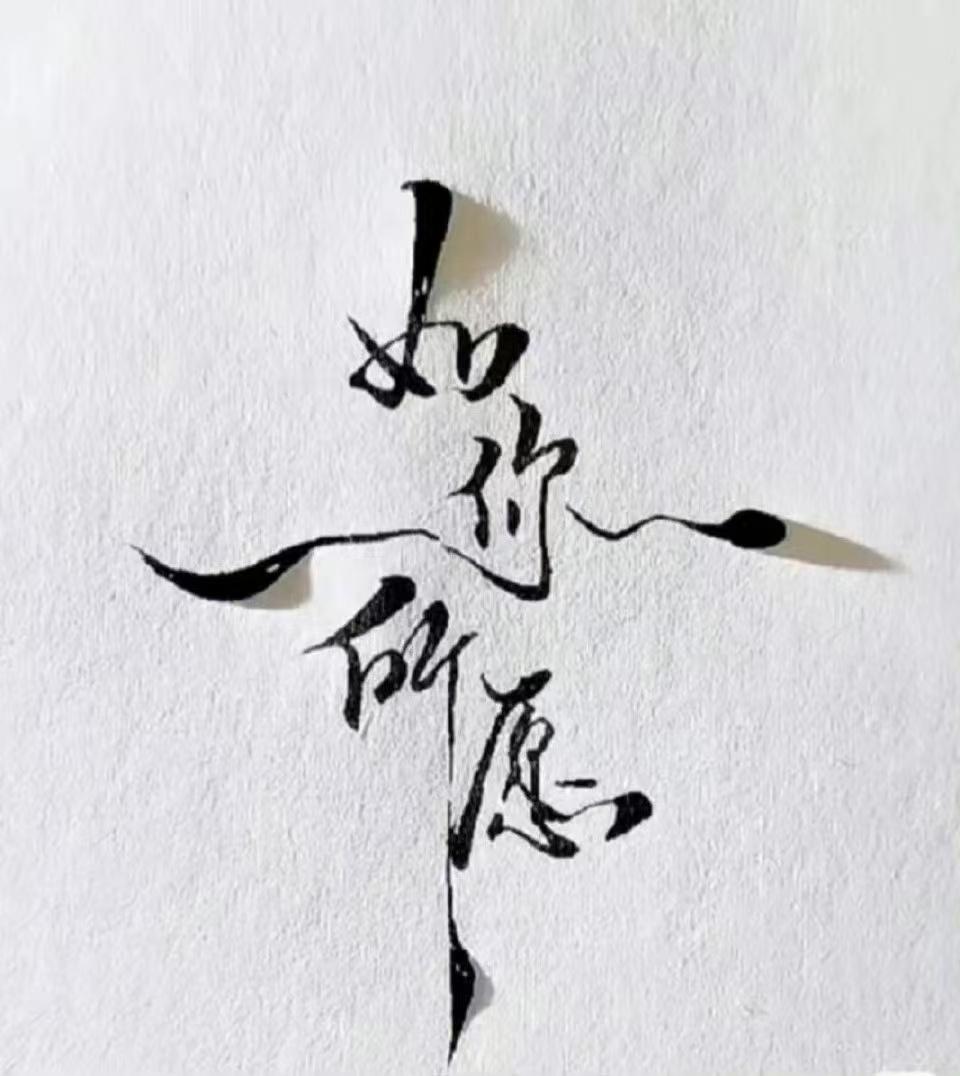 如你所愿